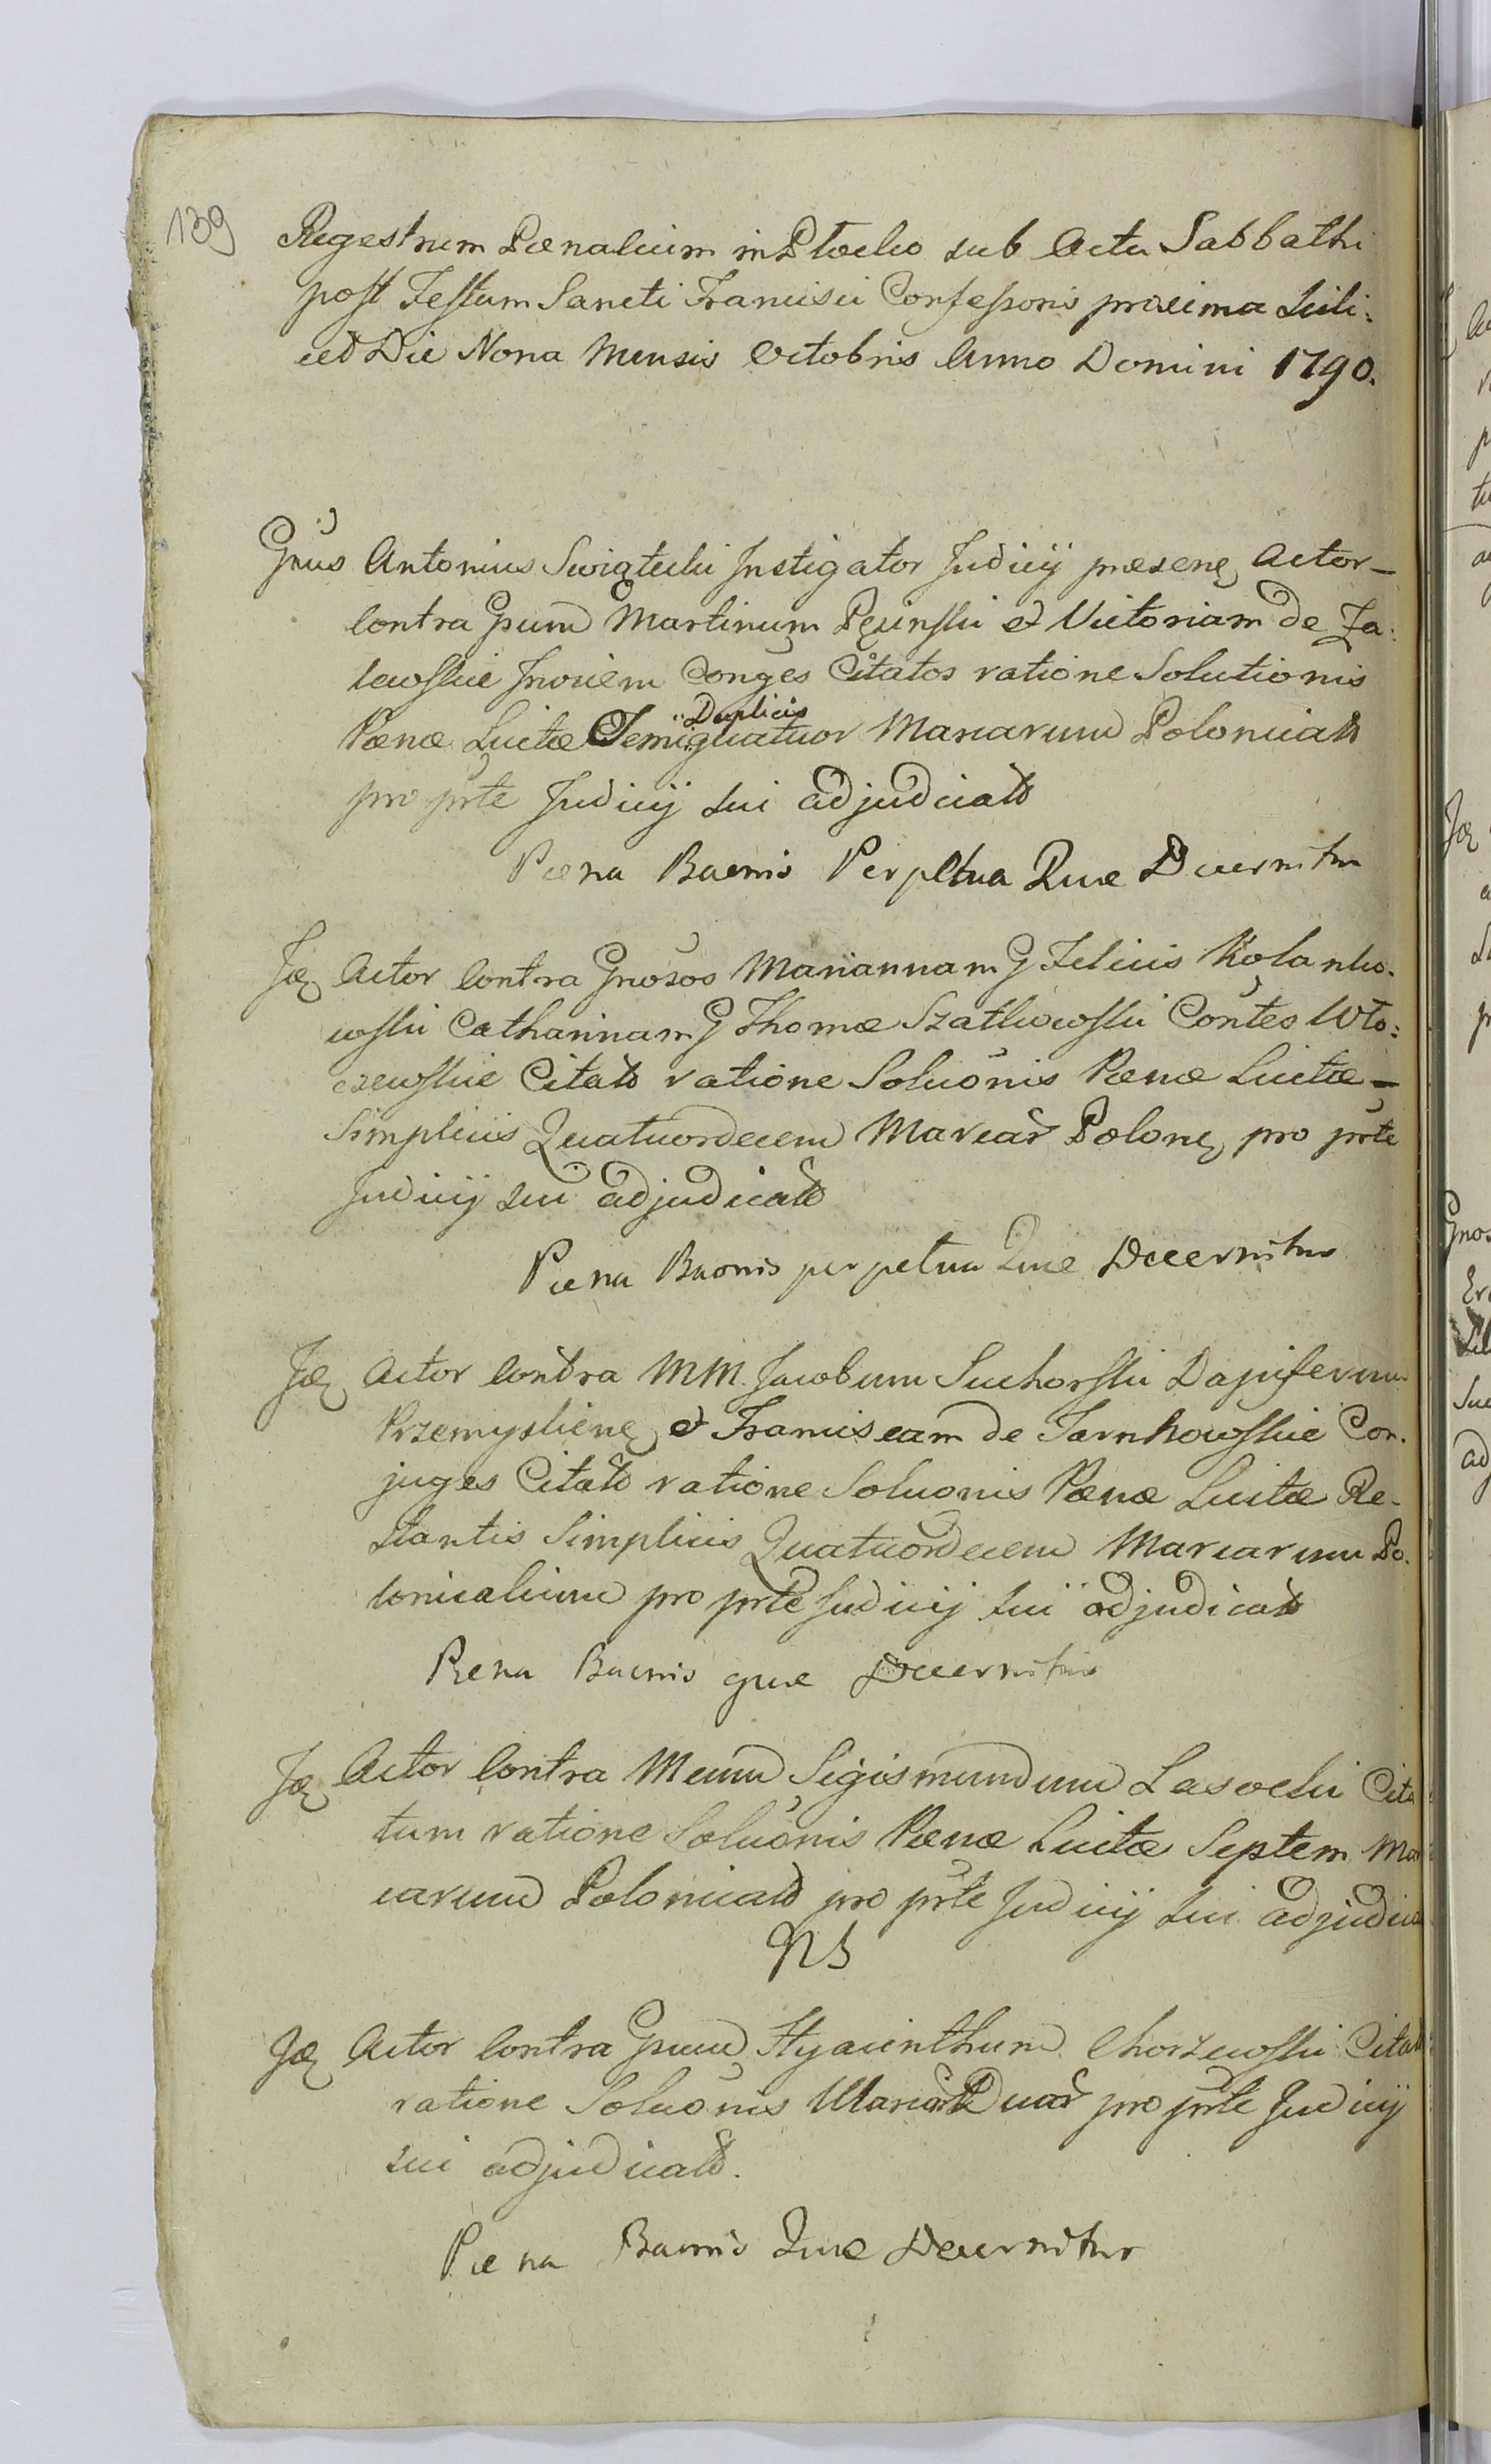 139
Regestrum Pœnalium in Płocko sub Actu Sabbathi
post Festum Sancti Francisci Confessoris proxima Scili:
cet Die Nona Mensis Octobris Anno Domini 1790.
Gnus Antonius Swiątecki Instigator Judicij præsens Actor
Contra Gsum Martinum et Victoriam de Za:
lewskie Invicem Conges Citatos ratione Solutionis
Duplicis
Pœnæ Luitæ quatuor Marcarum Polonicals
pro prte Judicij sui adjudicats
Pæna Baenis Perpetua Quæ Decernitur
Jdę Actor Contra Gnosos Mariannam G Felicis Kołanko:
wski Catharinam G Thomæ Szatkowski Contes Wło:
czewskie Citats ratione Soluonis Pœnæ Luitæ
Simplicis Quatuordecem Marcar Polonę pro prte
Judicij sui adjudicats
Pæna Baonis perpetua Quæ Decernitur
Jdę Actor Contra MM. Jacobum Suchorski Dapiferum
Przemyslienę et Franciscam de Tarnkowskie Con:
juges Citats ratione Soluonis Pœnæ Luitæ Re-
stantis Simplicis Quatuordecem Marcarum Po:
lonicalium pro prte Judicij sui adjudicats
Pæna Baenis quæ Decernitur
Jdę Actor Contra Mcum Sigismundum Lasocki Cita
tum ratione Soluonis Pœnæ Luitæ Septem Mar
carum Polonicals pro prte Judicij sui adjudica
NS
Jdę Actor Contra Gsum Hyacinthum Chorzewski Citat
ratione Soluonis Marcar Duar pro prte Judicij
sui adjudicats.
Pæna Baenis Quæ Decernitur